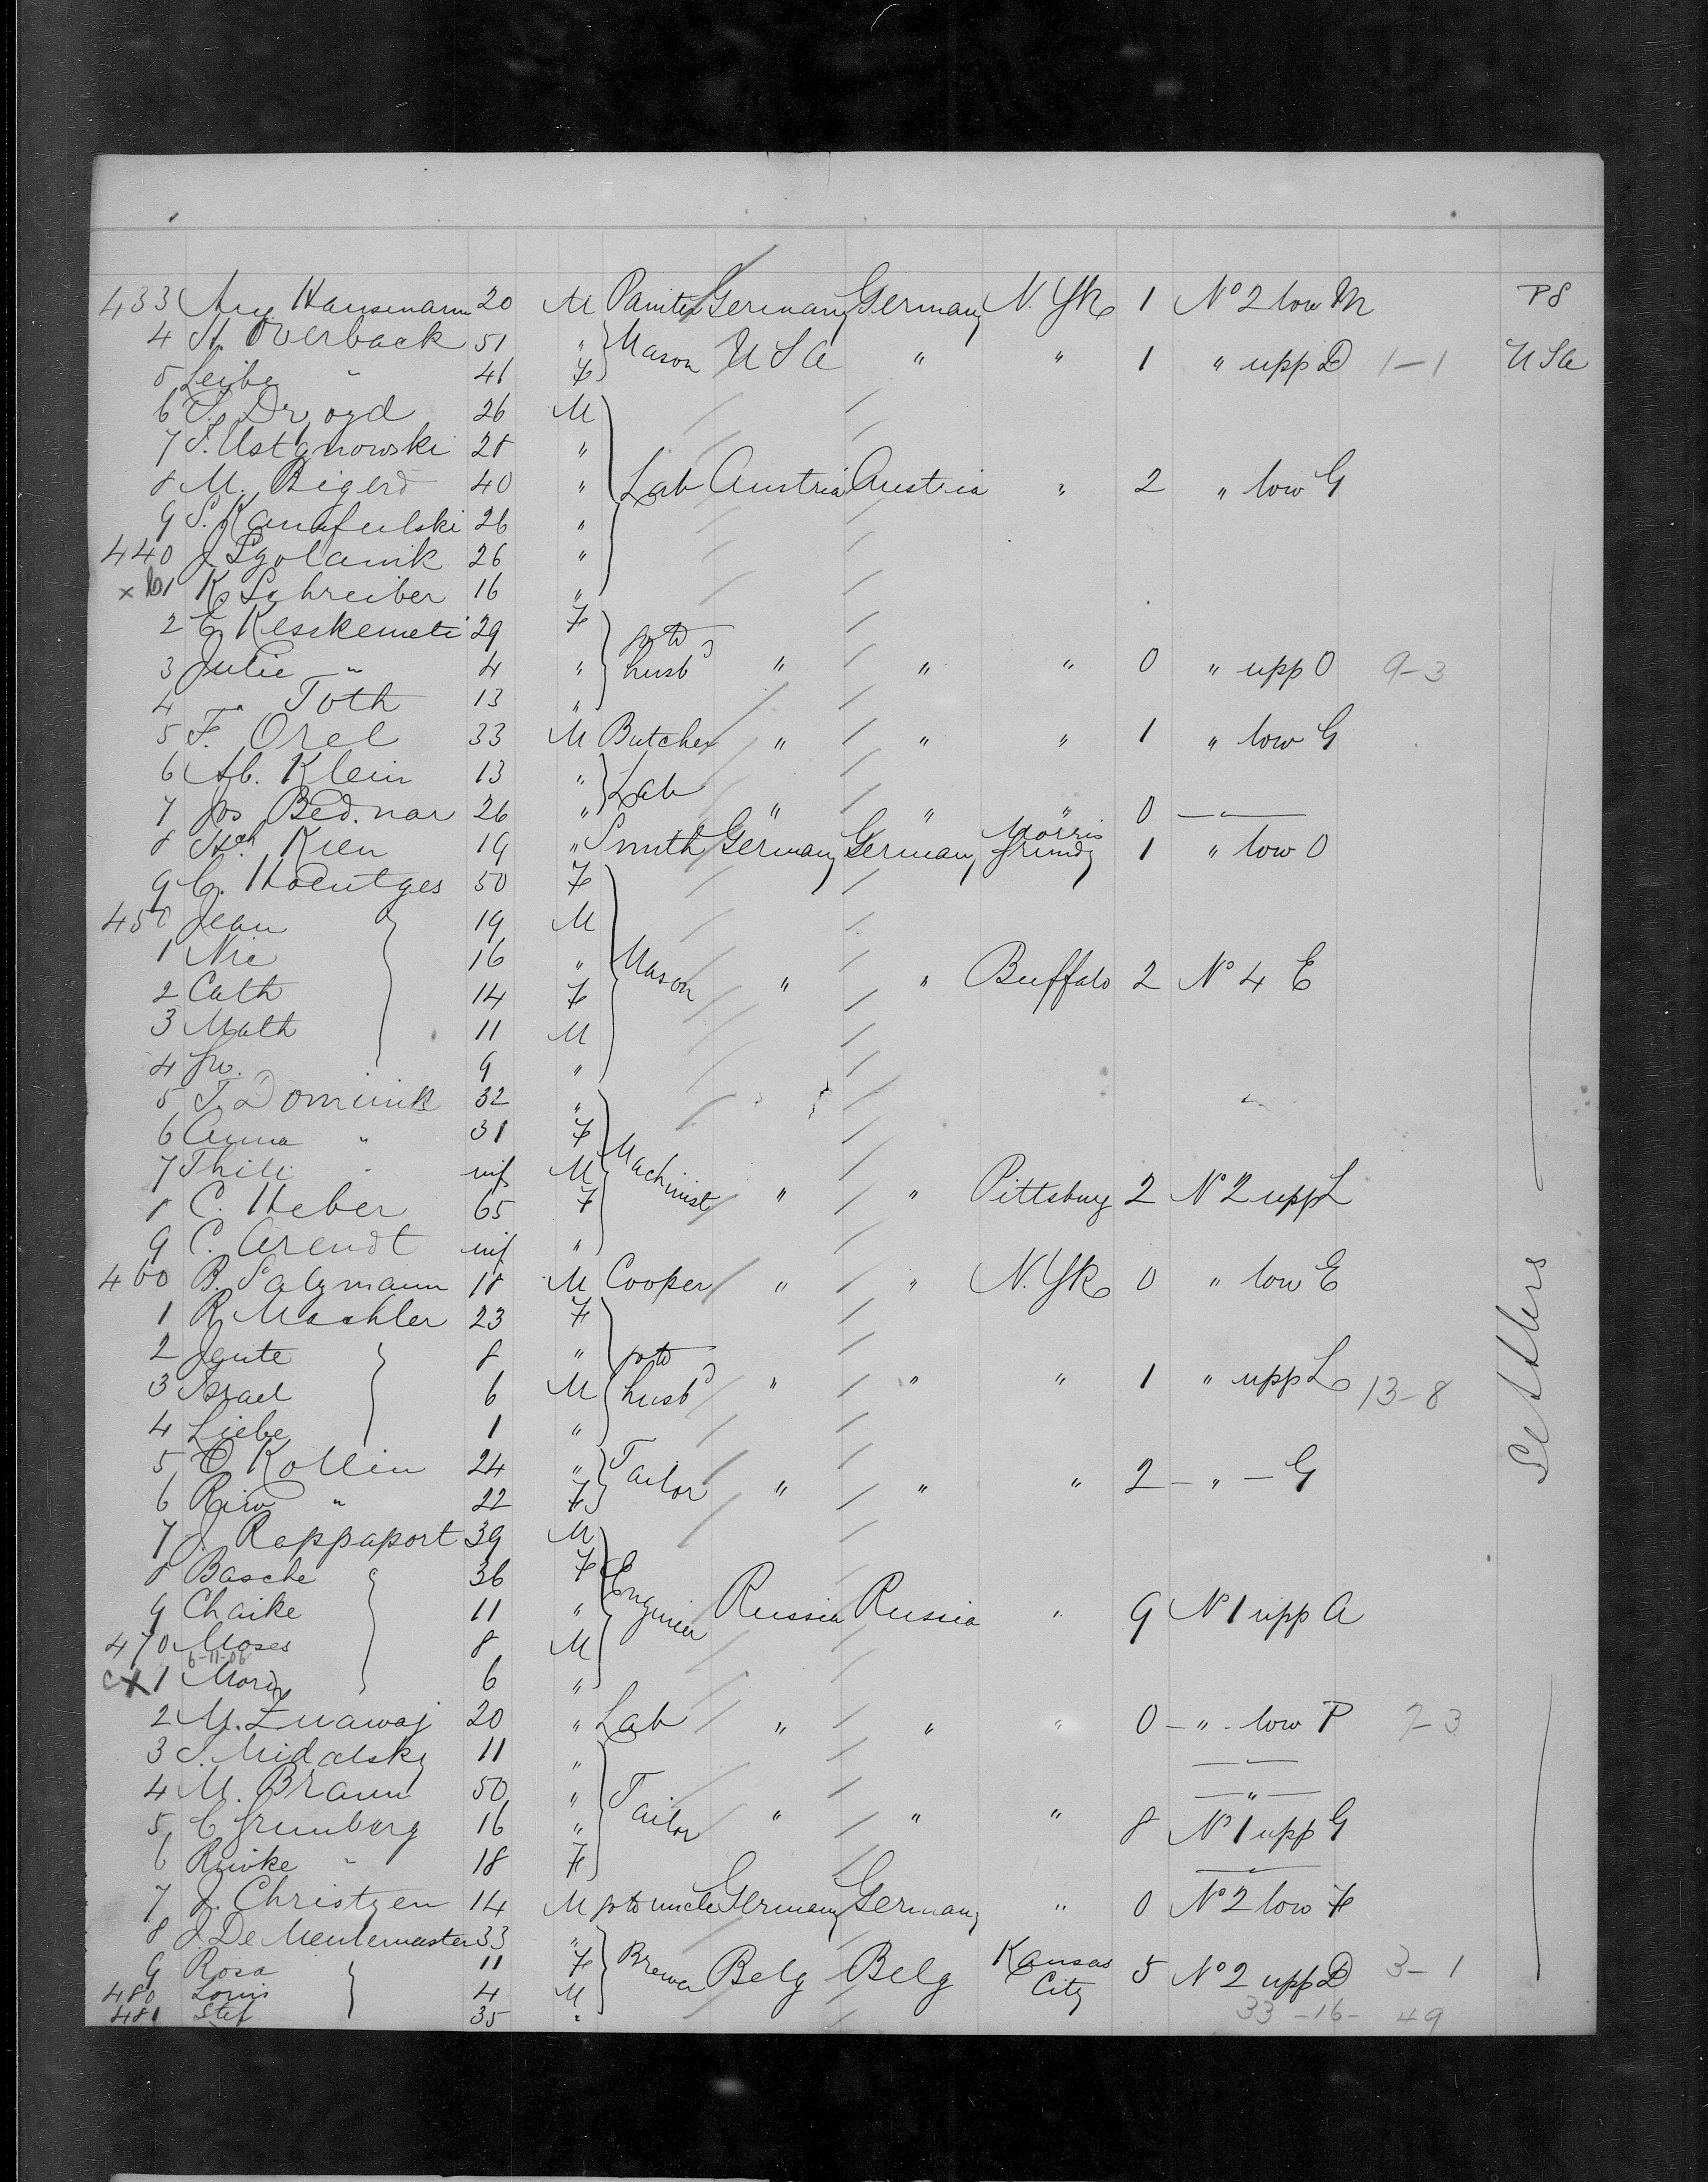 433 Aug Hausmann 20 M Painter Germany Germany N. Yk 1 No 2 low M P8
4 H. Overback 51 " Mason U S A " " 1 " upp D 1-1 U S A
5 Leibe " 41 F
6 S. Drozd 26 M
7 S. Ustynowski 28 "
8 M. Bigerd 40 " Lab Austria Austria " 2 " low G
9 S. Kanafulski 26 "
440 J 26 "
x 1 K Schreiber 16 "
2 E Kesskemeti 29 F
3 Julie " 4 " to husb " " " 0 " upp O 9-3
4 " Toth 13 "
5 F. Orel 33 M Butcher " " " 1 " low G
6 Ab. Klein 13 " Lab
7 Jos Bednar 26 " " " " 0 — " —
8 Kien 19 " Smith Germany Germany Morris Grundy 1 " low O
9 C. Hoentges 50 F
450 Jean 19 M
1 Nic 16 " Mason " " Buffalo 2 No 4 E
2 Cath 14 F
3 Math 11 M
4 9 "
5 J. Dominik 32 "
6 Anna " 31 F
7 Thili " inf M Machinist " " Pittsburg 2 No 2 upp L
8 C. Heber 65 F
9 C. Arendt inf "
460 B Salzmann 18 M Cooper " " N. Yk 0 " low E
1 R Machler 23 F
2 Jente 8 " to husb
3 Israel 6 M " " " 1 " upp L 13-8
4 Liebe 1 "
5 O Kollin 24 " Tailor " " " 2 — " — G
6 Riw " 22 F
7 J. Rappaport 39 M
8 Basche 36 F
9 Chaike 11 " Engineer Russia Russia " 9 No 1 upp A
470 Moses 8 M
6-11-06
cx 1 Mordy 6 "
2 M. Znawaj 20 " Lab " " " 0 — " — low P 7-3
3 S. Midalsky 11 " — " —
4 M. Braun 50 " Tailor — " —
5 C Grunberg 16 " " " " 8 No 1 upp G
6 Riwke " 18 F — " —
7 J. Christzen 14 M to uncle Germany Germany " 0 No 2 low F
8 J De Meulemeester 33 "
9 Rosa 11 F Brewer Belg Belg Kansas City 5 No 2 upp D 3-1
480 Louis 4 M
481 Stef 35 " 33-16- 49
Settlers